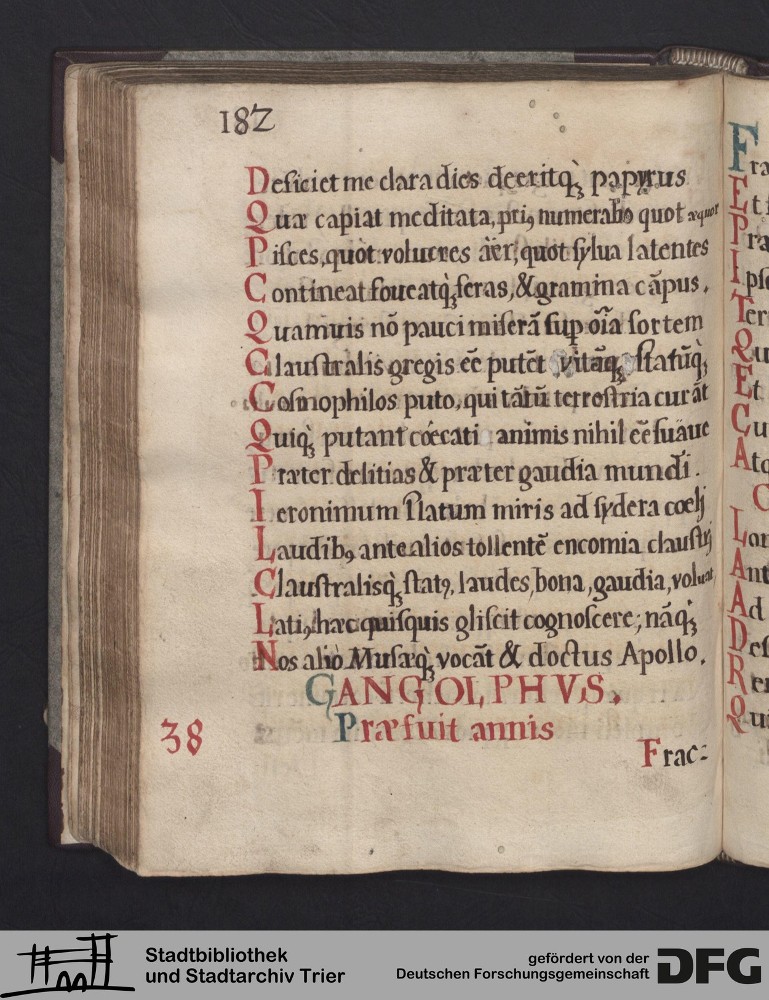 182
Deficiet me clara dies deeritq; papyrus
Quæ capiat meditata, pri9 numerabo quot æquor
Pisces, quot volucres àër, quot sylua latentes
Contineat foueatq; feras, & gramina cāpus.
Quamuis nō pauci miserā sup oīa sortem
Claustralis gregis eē putēt vitāq; statūq;
Cosmophilos puto, qui tātū terrestria curāt
Quiq; putant cœcati animis nihil eē suaue
Præter delitias & præter gaudia mundi.
Ieronimum Platum miris ad sydera coelj
Laudib9 ante alios tollentē encomia claustrj
Claustralisq; stat9, laudes, bona, gaudia, voluat,
Lati9 hæc quisquis gliscit cognoscere; nāq;
Nos aliò Musæq; vocāt & doctus Apollo.
GANGOLPHVS.
38 Præfuit annis
Frac=
Fra
Et
Præ
Ips
Ter
Qu
Et
Cu
Atq
C
Lon
Ant
Ad
Des
Re
Qui
Stadtbibliothek
und Stadtarchiv Trier
gefördert von der
Deutschen Forschungsgemeinschaft
DFG